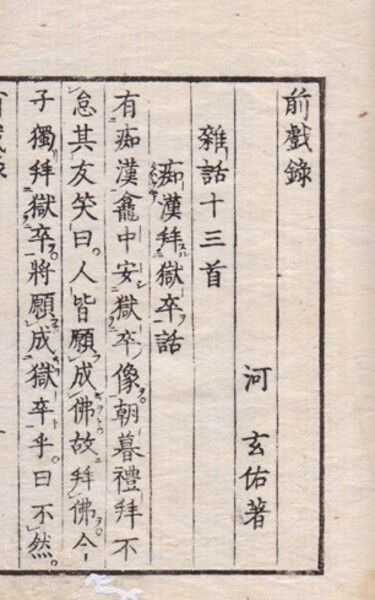 前戲錄
河玄佑著
雜話十三首
痴漢拜獄卒話
有痴漢龕中安獄卒像。朝暮禮拜不
怠其友笑曰。人皆願成佛故拜佛。今
子獨拜獄卒。將願成獄卒乎。曰不然。